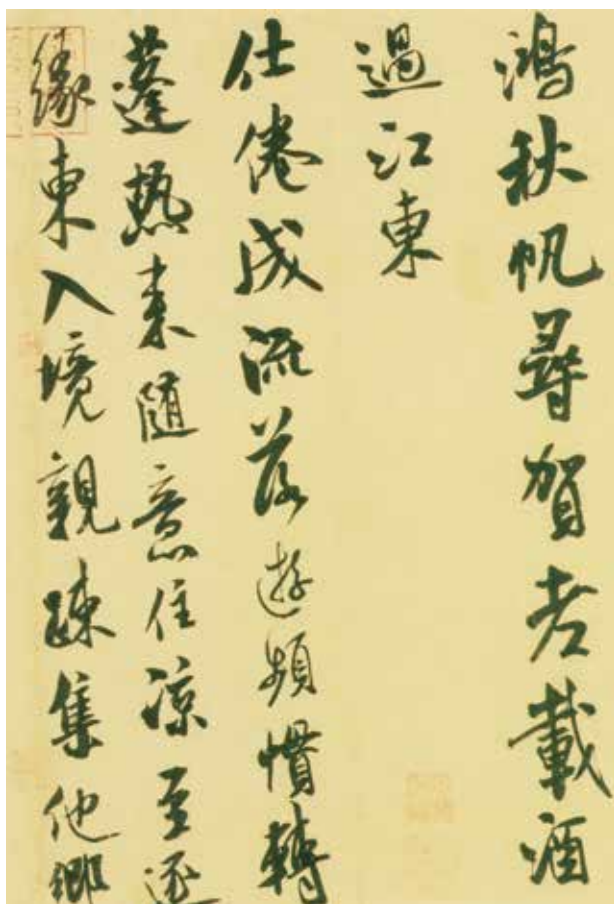 鴻秋帆尋賀老載酒
過江東
仕倦成流落遊頻慣轉
蓬熱来隨意住涼至逐
緣東入境親踈集他鄉